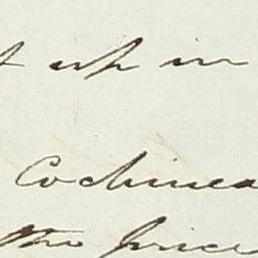 up in
Cochinea
the price